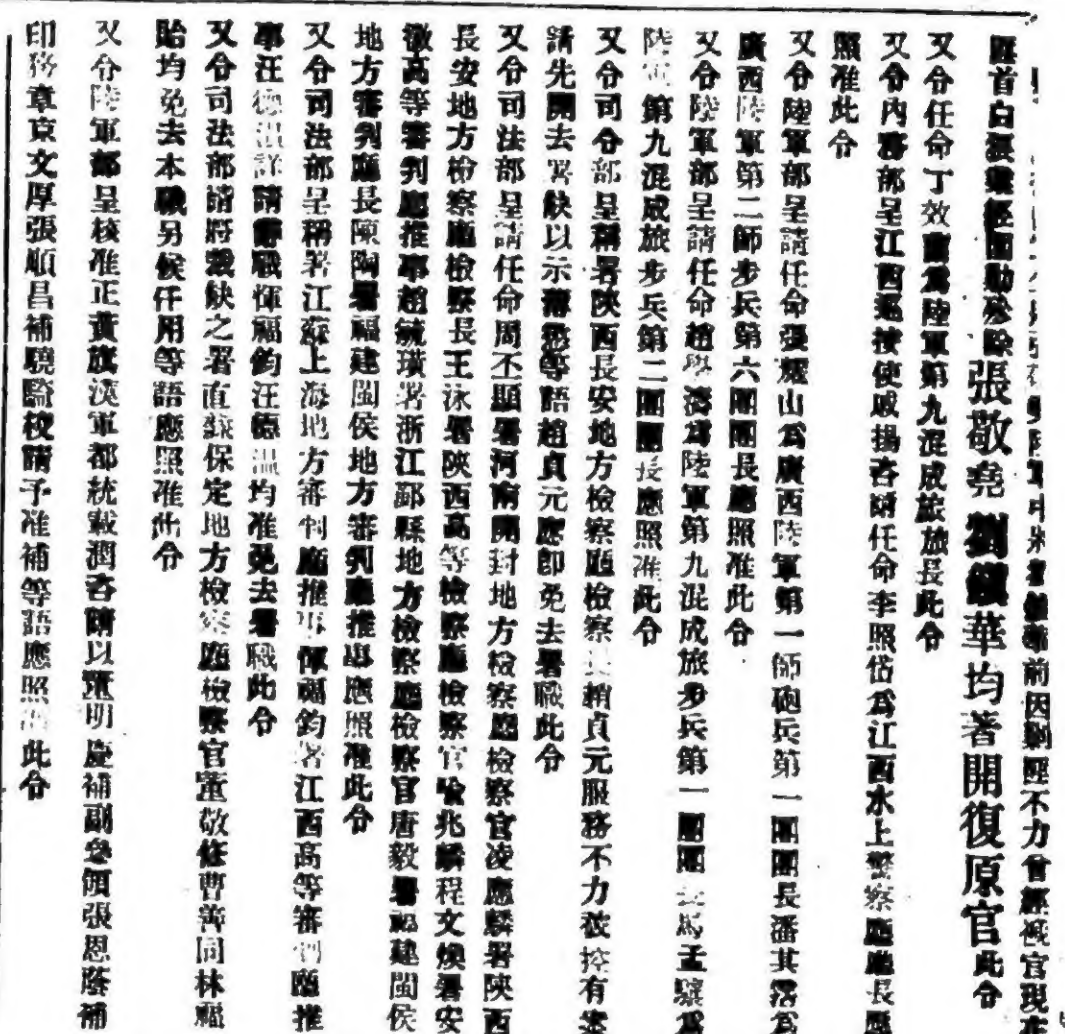 前因剿匪不力曾經褫官現在
匪首白狼業經圍勦殄除張敬堯劉鎮華均著開復原官此令
又令任命丁效蘭爲陸軍第九混成旅旅長此令
又令內務部呈江西巡按使戚揚咨請任命李照岱爲江西水上警察廳廳長應
照准此令
又令陸軍部呈請任命張耀山爲廣西陸軍第一師砲兵第一團團長潘其霱爲
廣西陸軍第二師步兵第六團團長應照准此令
又令陸軍部呈請任命趙學濤爲陸軍第九混成旅步兵第一團團長馬孟驥爲
陸軍第九混成旅步兵第二團團長應照准此令
又令司令部呈稱署陝西長安地方檢察廳檢察長趙貞元服務不力被控有案
請先開去署缺以示薄懲等語趙貞元應卽免去署職此令
又令司法部呈請任命周不顯署河南開封地方檢察廳檢察官凌應麟署陝西
長安地方檢察廳檢察長王泳署陝西高等檢察廳檢察官喻兆麟程文煥署安
徽高等審判廳推事趙毓璜署浙江鄞縣地方檢察廳檢察官唐毅署福建閩侯
地方審判廳長陳陶署福建閩侯地方審判廳推事應照准此令
又令司法部呈稱署江蘇上海地方審判廳推事惲福鈞署江西高等審判廳推
事汪德溫詳請辭職惲福鈞汪德溫均准免去署職此令
又令司法部請將裁缺之署直隸保定地方檢察廳檢察官董敬修曹善同林福
貽均免去本職另候任用等語應照准此令
又令陸軍部呈核准正黃旗漢軍都統載潤咨請以董明慶補副參領張恩蔭補
印務章京文厚張順昌補驍騎校請予准補等語應照准此令